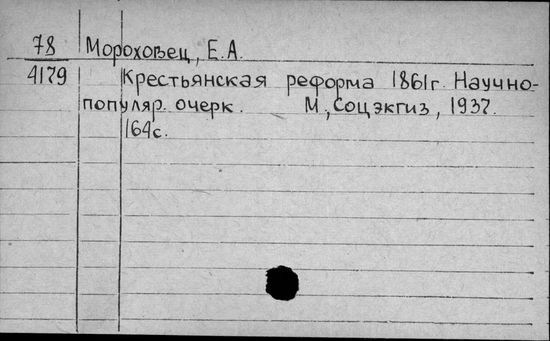 78 Мороховец, Е.А.
4179 Крестьянская реформа 1861г. Научно-
популяр. очерк. М., Соцэкгиз, 1937.
164с.